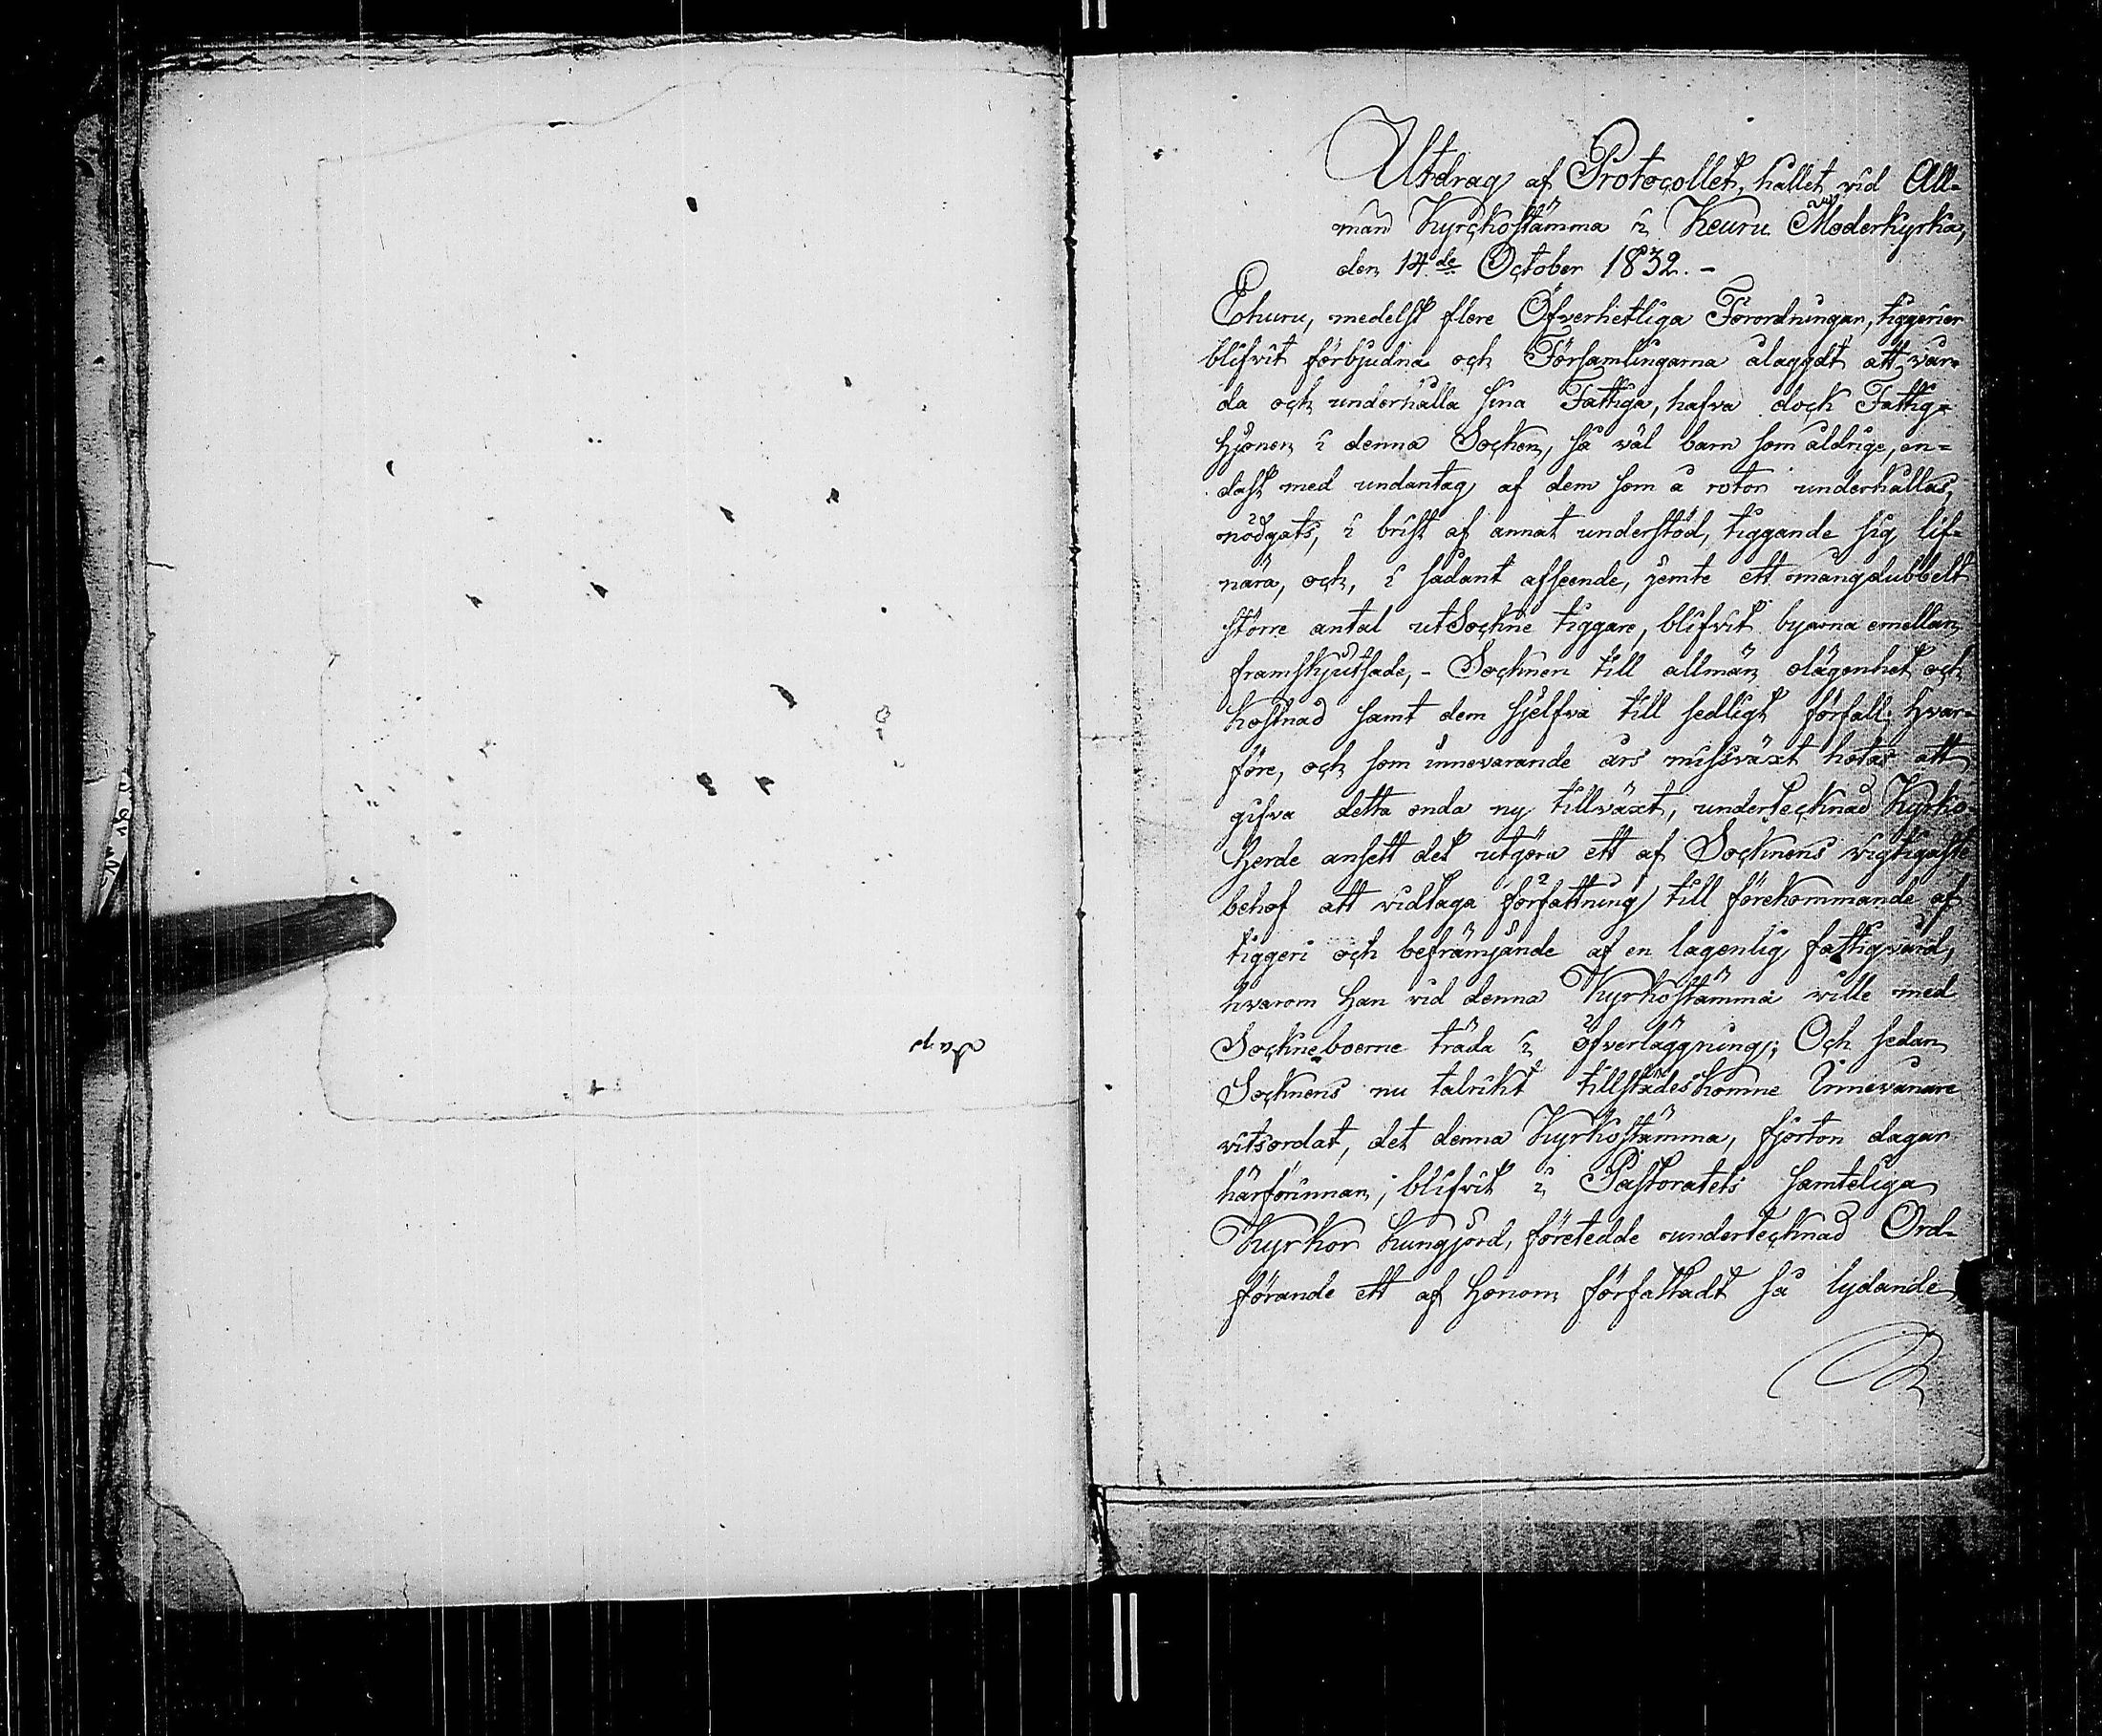 Utdrag af Protocollet, hållet vid All-
män Kyrckostämma i Keuru Moderkyrka,
den 14de October 1832. -
Ehuru, medelst flere Öfverhetliga Förordningar, tiggerier
blifvit förbjudna och Församlingarna ålaggdt att vår-
da och underhålla sina Fattiga, hafva dock Fattig-
hjonen i denna Socken, så väl barn som åldrige, en-
dast med undantag af dem som å rotor underhållas,
nödgats, i brist af annat understöd, tiggande sig lif-
nära, och, i sådant afseende, jemte ett mångdubbelt
större antal utSockne tiggare, blifvit byarna emellan
framskjutsade, - Socknen till allmän olägenhet och
kostnad samt dem sjelfva till sedligt förfall; hvar-
före, och som innevarande års missväxt hotar att
gifva detta onda ny tillväxt, undertecknad Kyrko-
herde ansett det utgöra ett af Socknens vigtigaste
behof att vidtaga författning till förekommande af
tiggeri och befrämjande af en lagenlig fattigvård,
hvarom han vid denna Kyrkostämma ville med
Sockneboerne träda i öfverläggning; Och sedan
Socknens nu talrikt tillstädeskomne Innevånare
vitsordat, det denna Kyrkostämma, fjorton dagar
härförinnan, blifvit i Pastoratets samteliga
Kyrkor kungjord, företedde undertecknad Ord-
förande ett af honom författadt så lydande